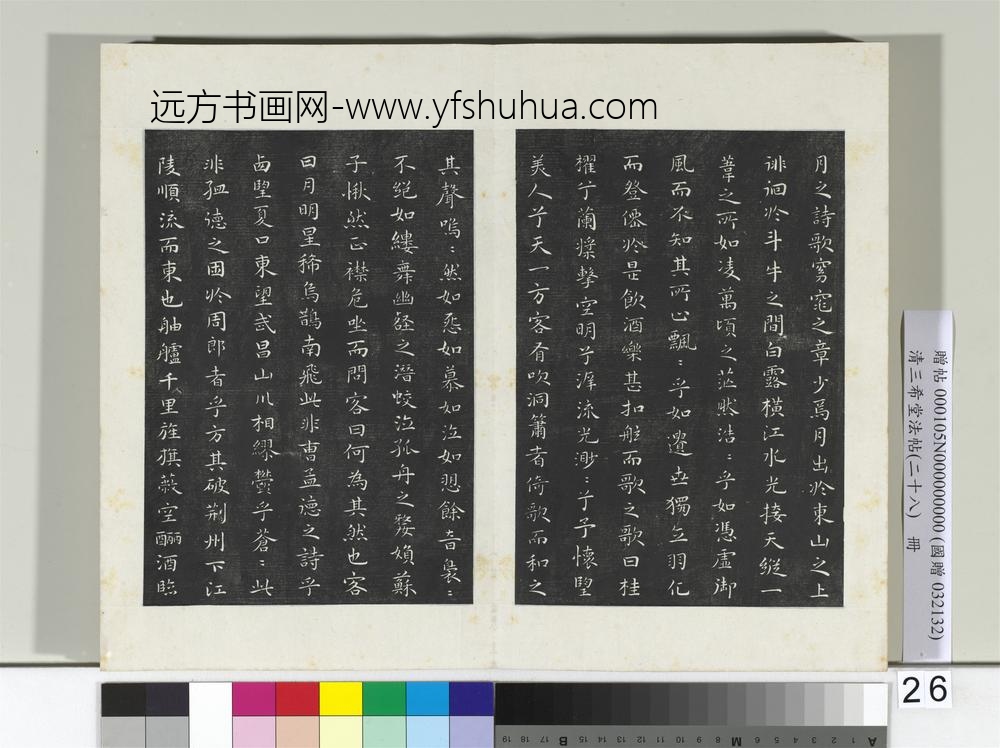 远方书画网-www.yfshuhua.com
月之詩歌窈窕之章少焉月出於東山之上
徘徊於斗牛之間白露橫江水光接天縱一
葦之所如凌萬頃之茫然浩:乎如憑虛御
風而不知其所止飄:乎如遺世獨立羽化
而登僊於是飲酒樂甚扣舷而歌之歌曰桂
櫂兮蘭槳擊空明兮泝流光渺:兮予懷望
美人兮天一方客有吹洞簫者倚歌而和之
其聲嗚:然如怨如慕如泣如愬餘音裊:
不絕如縷舞幽壑之潛蛟泣孤舟之嫠婦蘇
子愀然正襟危坐而問客曰何為其然也客
曰月明星稀烏鵲南飛此非曹孟德之詩乎
西望夏口東望武昌山川相繆鬱乎蒼:此
非孟德之困於周郎者乎方其破荊州下江
陵順流而東也舳艫千里旌旗蔽空釃酒臨
贈帖 000105N000000000 (國贈 032132)
清三希堂法帖(二十八) 冊
26
19 18 17 B 16 15 14 13 12 11 10 9 8 M 7 6 5 4 3 2 1 A